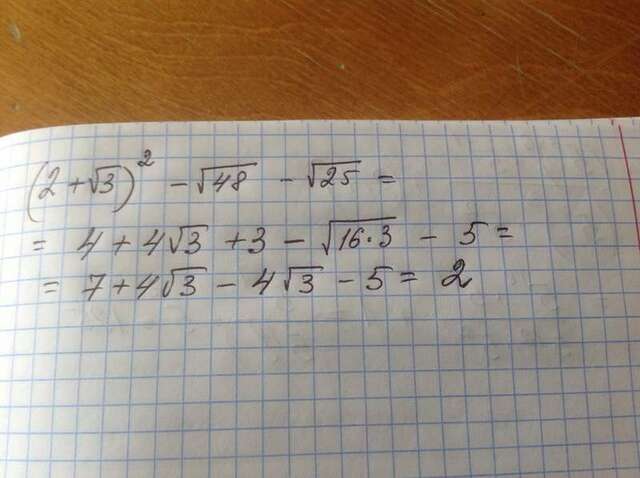 (2+√3)² - √48 - √25 =
= 4 + 4√3 + 3 - √16·3 - 5 =
= 7 + 4√3 - 4√3 - 5 = 2